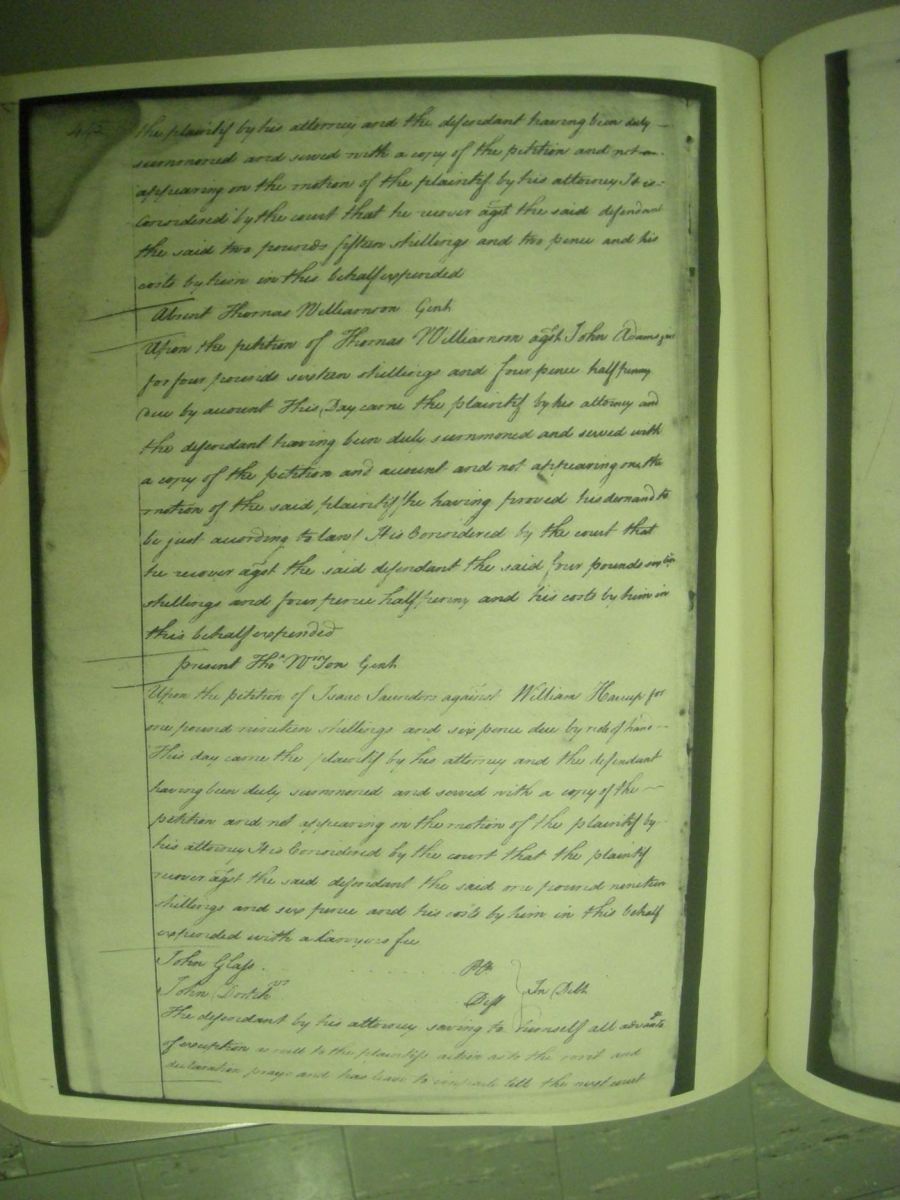 the plaintif by his attorney and the defendant having been duly
summoned and served with a copy of the petition and not
appearing on the motion of the plaintif by his attorney It is
Considered by the court that he recover agst the said defendant
the said two pounds fifteen shillings and two pence and his
costs by him in this behalf expended
Absent Thomas Williamson Gent
Upon the petition of Thomas Williamson agst John Adams
for four pounds sixteen shillings and four pence half penny
due by account This Day came the plaintif by his attorney and
the defendant having been duly summoned and served with
a copy of the petition and account and not appearing on the
motion of the said plaintif he having proved his demand to
be just according to law It is Considered by the court that
he recover agst the said defendant the said four pounds sixteen
shillings and four pence half penny and his costs by him in
this behalf expended
present Thos Wmson Gent
Upon the petition of Isaac Saunders against William Harrup for
one pound nineteen shillings and six pence due by note of hand
This day came the plaintif by his attorney and the defendant
having been duly summoned and served with a copy of the
petition and not appearing on the motion of the plaintif by
his attorney It is Considered by the court that the plaintif
recover agst the said defendant the said one pound nineteen
shillings and six pence and his costs by him in this behalf
expended with a Lawyers fee
John Glass Plt
In Debt
John Dortch Deft
The defendant by his attorney saving to himself all advanta
of exception as well to the plaintiffs action as to the writ and
declaration prays and has leave to imparle till the next court